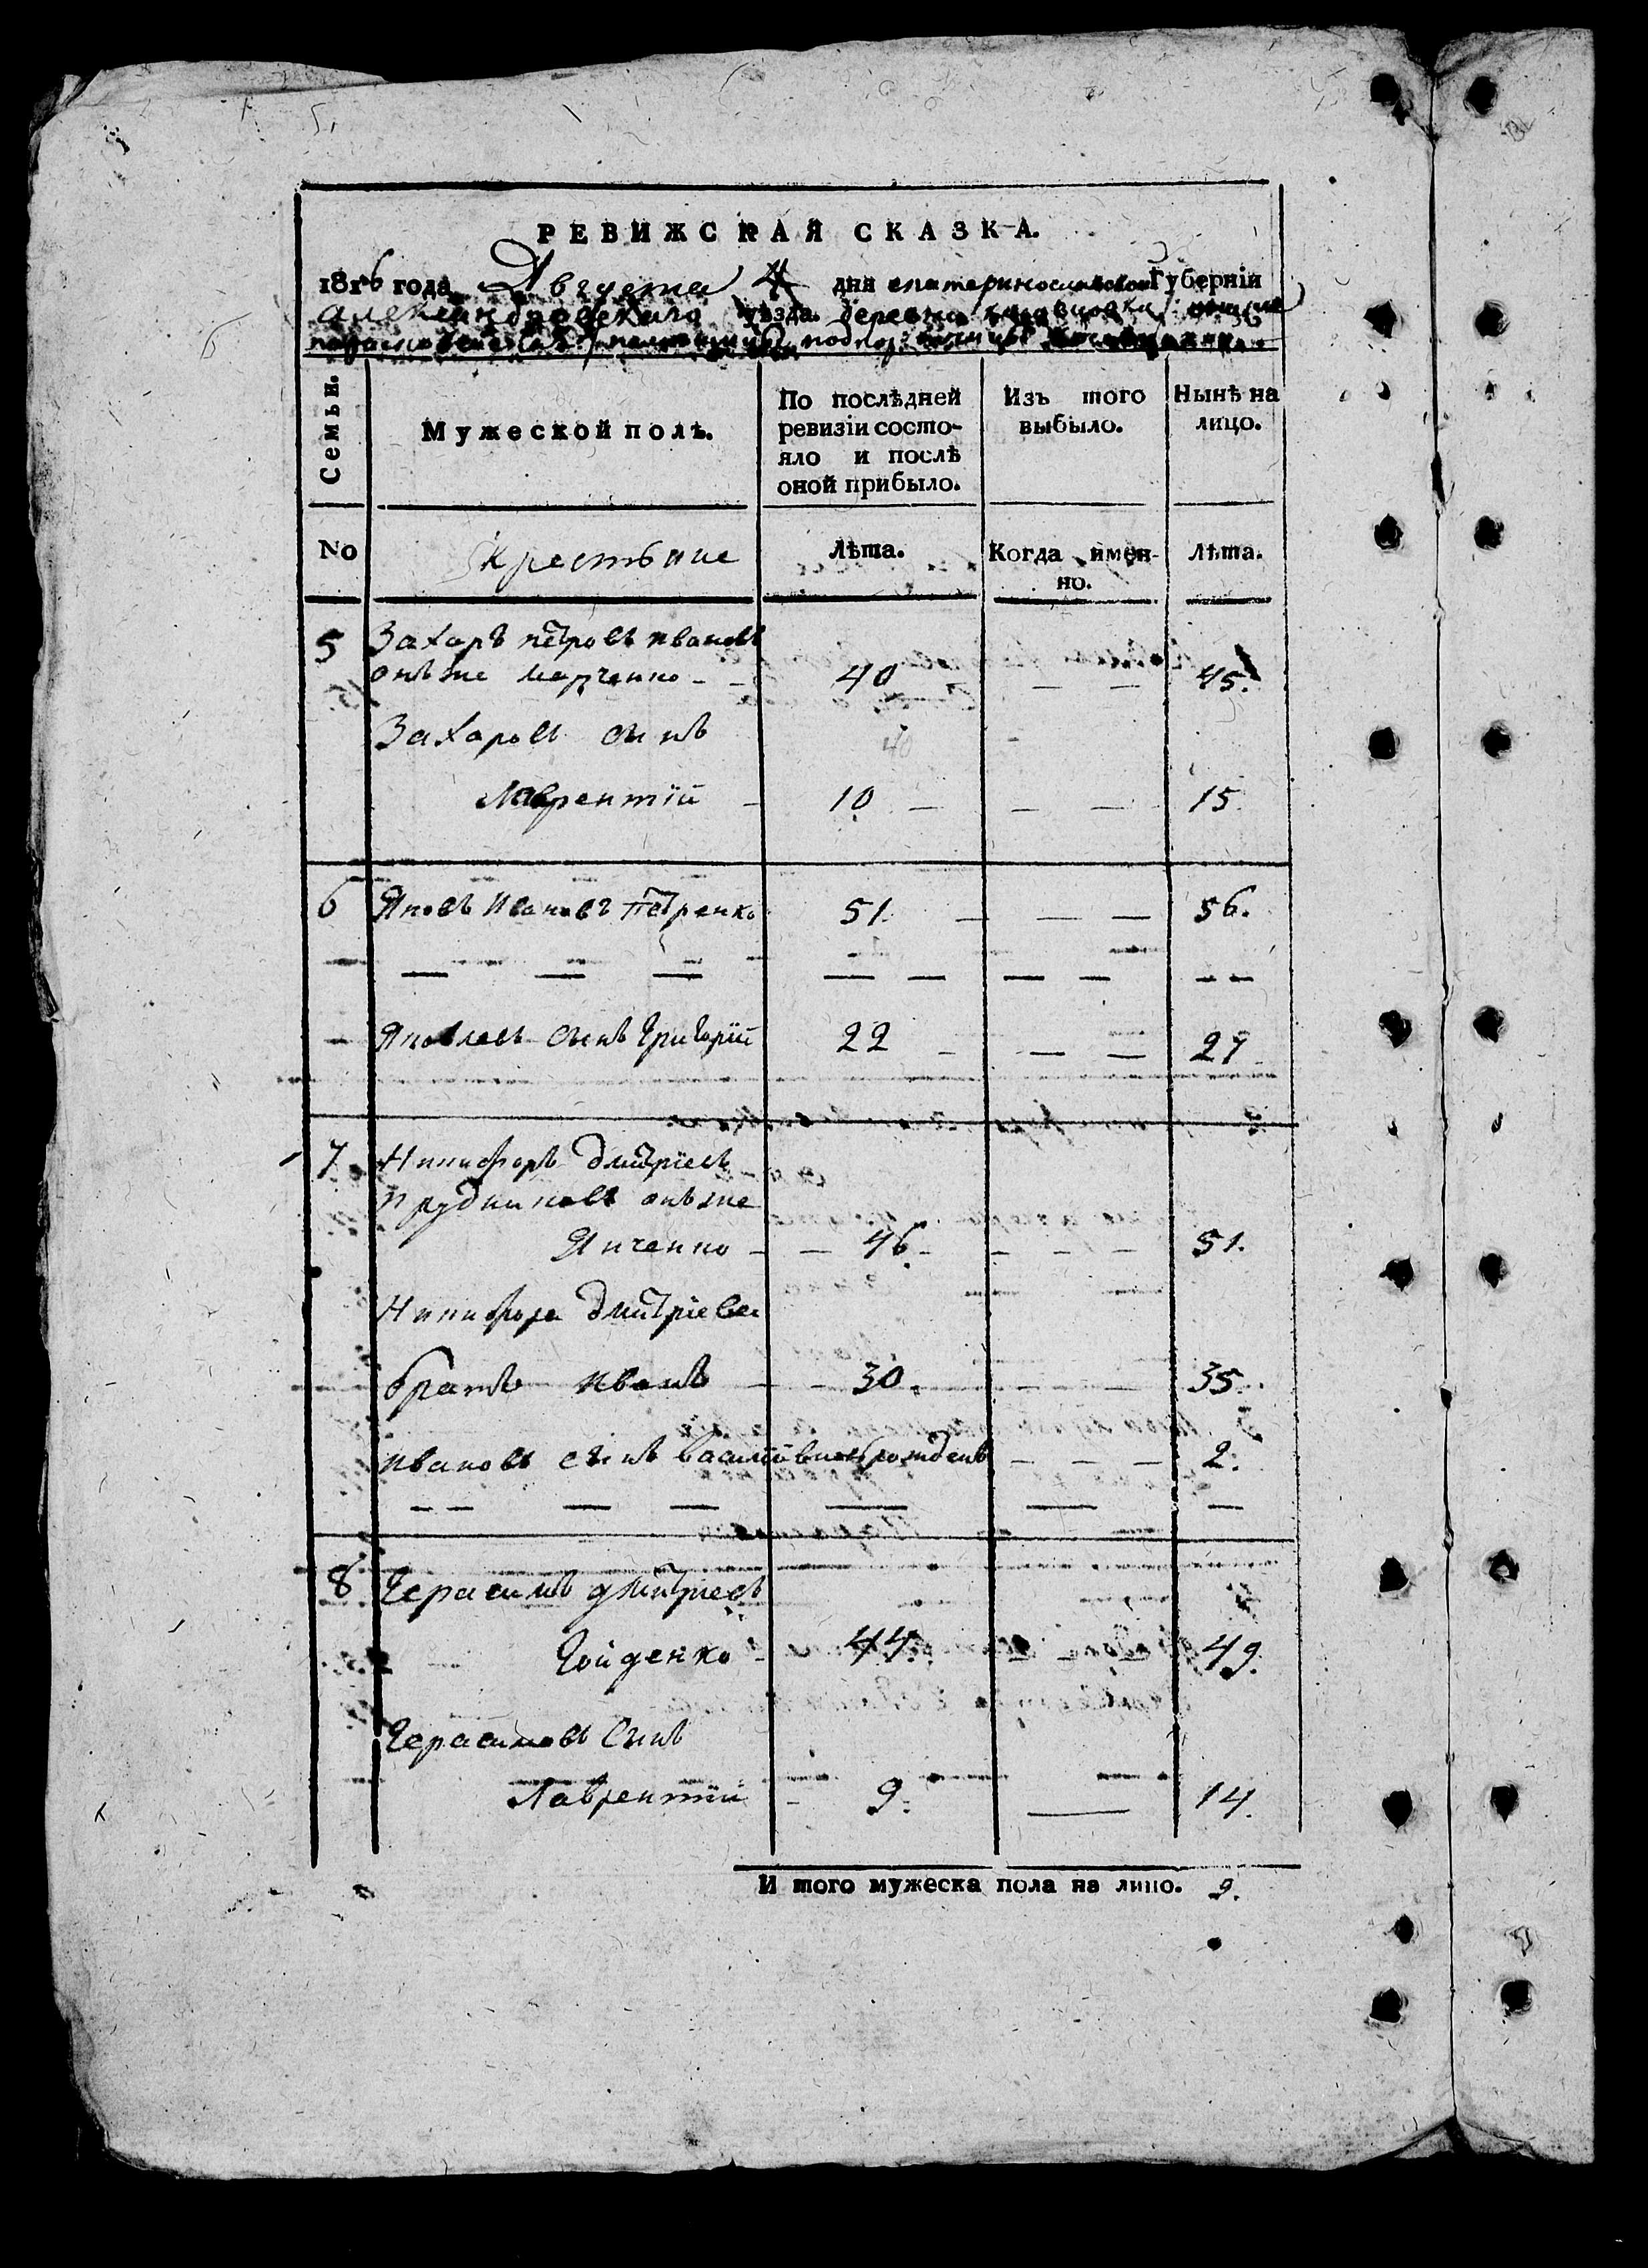 РЕВИЖСКАЯ СКАЗКА.
1816 года Августа 4 дня екатеринославской Губерніи
александровскаго уѣзда деревни
Семьи.
Мужеской полъ.
По послѣдней ревизіи состо-
яло и послѣ
оной прибыло.
Изъ того
выбыло.
Нынѣ на
лицо.
No
Крестьяне
Лѣта.
Когда имен-
но.
Лѣта.
5 Захаръ петровъ ивановъ
онъже марченко - 40 — — 45.
Захаровъ сынъ
40
Лаврентій - 10 — — — 15
6 Яковъ Ивановъ Петренко 51. — — — 56.
Яковлевъ сынъ Григорій 22 - — — 27
7 Никифоръ дмитріевъ
прудниковъ онъже
Янченко - - 46 - - - - 51.
Никифора дмитріева
братъ иванъ - - 30. - - 35.
ивановъ сынъ василій вновьрожденъ - - - 2.
8 Герасимъ дмитріевъ
Гойденко - 44. - - 49.
Герасимовъ сынъ
Лаврентій - 9. — 14.
И того мужеска пола на лицо. 9.